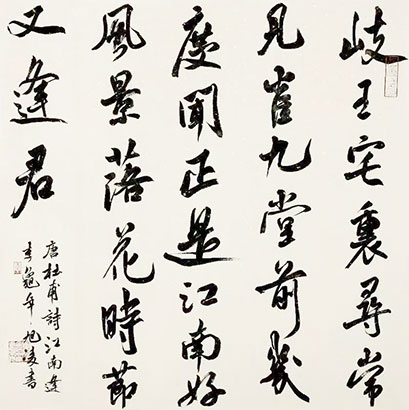 岐王宅裏尋常
見崔九堂前幾
度聞正是江南好
風景落花時節
又逢君
唐杜甫詩江南逢
李龜年 書